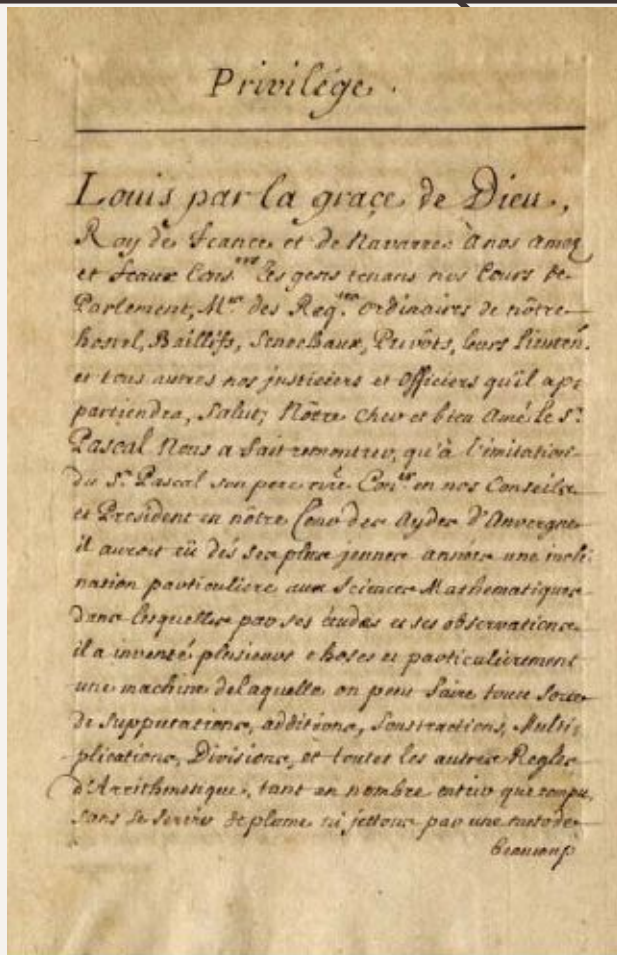 Privilége.
Louis par la graçe de Dieu,
Roy de France et de Navarre: à nos amez
et feaux Cons.ers les gens tenans nos Cours de
Parlement, M.es des Req.tes ordinaires de nôtre
hostel, Baillifs, Senechaux, Prevôts, leurs Lieuten.
et tous autres nos justiciers et Officiers qu'il ap:
partiendra, Salut; Nôtre cher et bien Amé le S.r
Pascal Nous a fait remontrer, qu'à l'imitation
du S.r Pascal son pere nôtre Con.er en nos Conseils
et President en nôtre Cour des Aydes d'Auvergne
il auroit eü dés ses plus jeunes années une incli:
nation particuliere aux Sciences Mathematiques
dans lesquelles par ses études et ses observations
il a inventé plusieurs choses et particulièrement
une machine de laquelle on peut faire toute sorte
de Supputations, additions, Soustractions, Multi:
plications, Divisions, et toutes les autres Regles
d'Arrithmetique, tant en nombre entier que rompu,
sans se servir de plume ni jettons par une metode
beaucoup